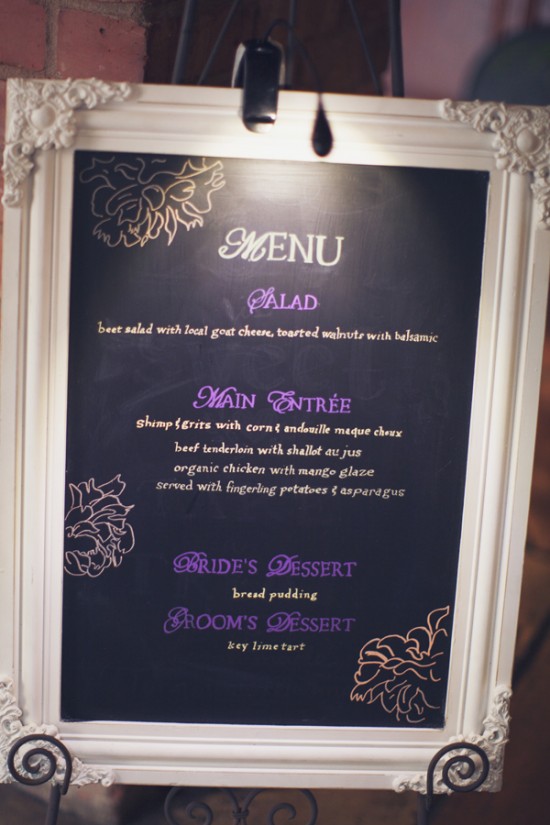 MENU
SALAD
beet salad with local goat cheese, toasted walnuts with balsamic
MAIN ENTRÉE
Shimp & grits with corn & andouille maque choux
beef tenderloin with shallot au jus
organic chicken with mango glaze
served with fingerling potatoes & asparagus
BRIDE'S DESSERT
bread pudding
GROOM'S DESSERT
key lime tart